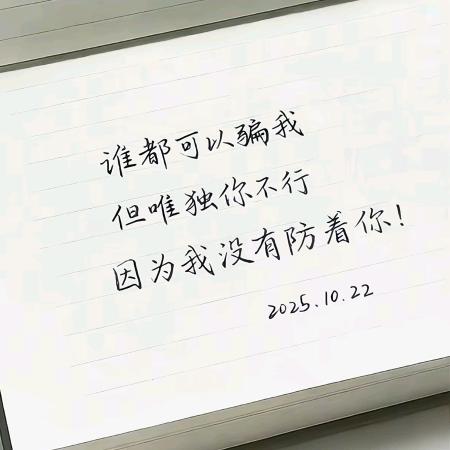 谁都可以骗我
但唯独你不行
因为我没有防着你!
2025.10.22